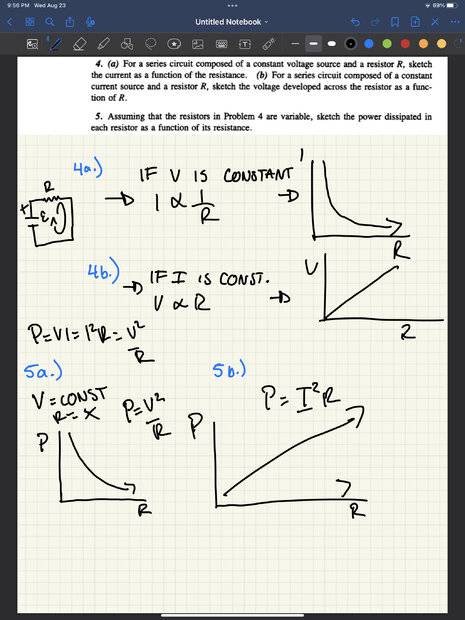 9:56 PM Wed Aug 23
69%
Untitled Notebook
4. (a) For a series circuit composed of a constant voltage source and a resistor R, sketch
the current as a function of the resistance. (b) For a series circuit composed of a constant
current source and a resistor R, sketch the voltage developed across the resistor as a func-
tion of R.
5. Assuming that the resistors in Problem 4 are variable, sketch the power dissipated in
each resistor as a function of its resistance.
4a.)
IF V IS CONSTANT
I ∝ 1/R
R
+
I
R
4b.)
IF I IS CONST.
V ∝ R
V
R
P=VI=I²R=V²/R
5a.)
V=CONST
R=X
P=V²/R
P
R
5b.)
P=I²R
P
R